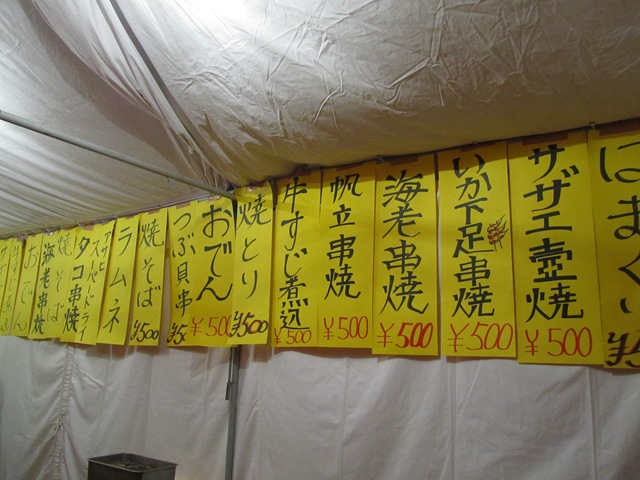 はまぐり
サザエ壺焼
¥500
いか下足串焼
¥500
海老串焼
¥500
帆立串焼
¥500
牛すじ煮込
¥500
焼とり
¥500
おでん
¥500
つぶ貝串
焼そば
¥500
ラムネ
スーパードライ
タコ串焼
焼そば
海老串焼
おでん